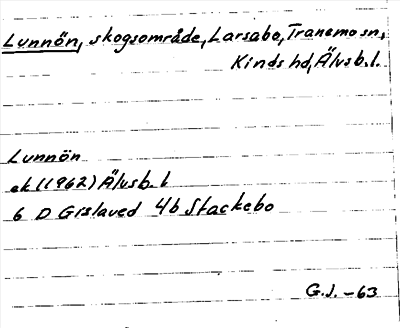 Lunnön, skogsområde, Larsabo, Tranemo sn,
Kinds hd, Älvsb.l.
Lunnön
ek (1962) Älvsb. l
6 D Gislaved 4b Stackebo
G.J. -63